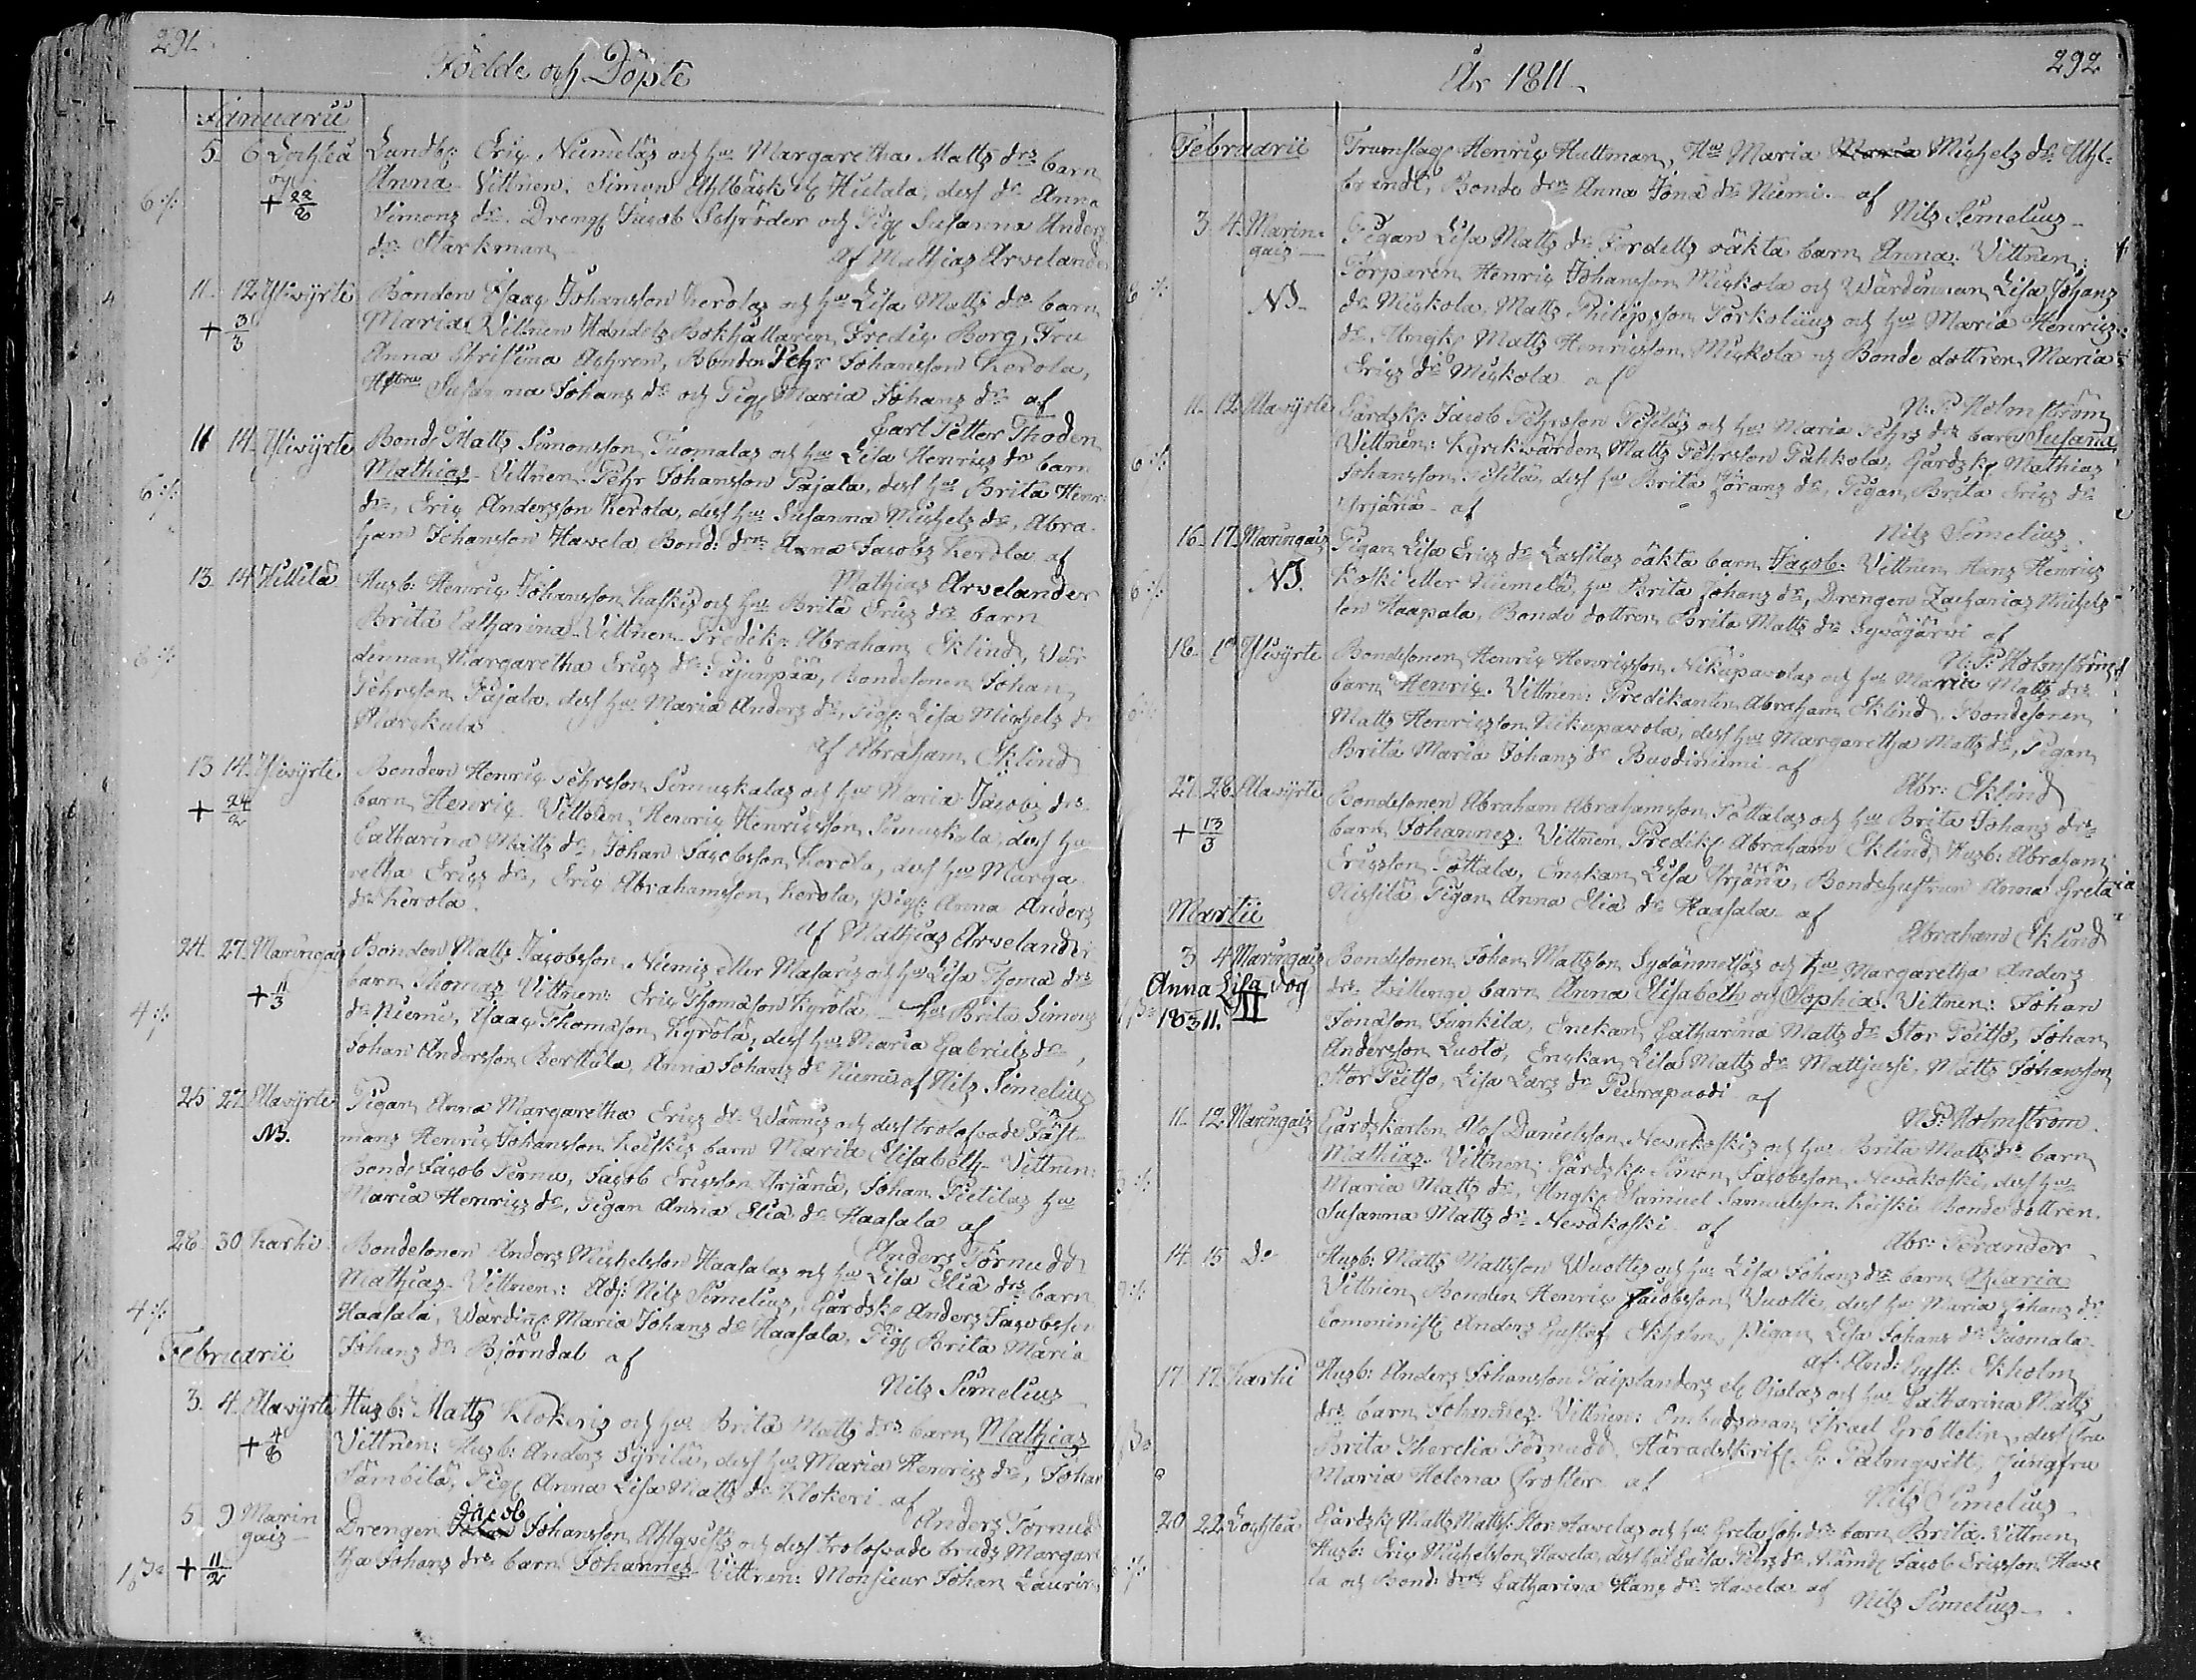 291.
Födde och Döpte
Januarii
5. 6 Lochteå Landb: Eric Niemeläs och h:s Margaretha Matts drs barn
6 :/: + 22/8 Anna Vittnen: Simon Ahlbäck Hietala, dess dr Anna
Simons dr. Dreng Jacob Schröder och Pig Susanna Anders
dr Starkman
af Mathias Arvelander
11. 12 Ylivÿrte Bonden Isaac Johansson Kerolas och hu Lisa Matts drs barn
+ 3/3 Maria Vittnen Handels Bokhållaren Fredric Borg, Fru
Anna Christina Aschren, Bonden Pehr Johansson Kerola,
Hustru Susanna Johans dr och Pig Maria Johans dr af
Carl Petter Thoden
11 14. Ylivÿrte Bond Matts Simonsson Tuomalas och hu Lisa Henrics drs barn
6 :/: Mathias Vittnen Pehr Johansson Pajala, dess hu Brita Henr:
dr, Eric Andersson Kerola, dess hu Susanna Michels dr, Abra-
ham Johansson Havela Bond: drn Anna Jacobs Kerola af
Mathias Arvelander
13. 14 Hillilä Husb: Henric Johansson Laskis och hu Brita Erics drs barn
Brita Catharina Vittnen Predik: Abraham Eklind, Vär
6 :/: dinnan Margaretha Erics dr Pajunpää, Bondesonen Johan
Pehrsson Pajala, dess hu Maria Anders dr, Pig: Lisa Michels dr
Marskula
af Abraham Eklind
13 14. Ylivÿrte Bonden Henric Pehrsson Simuskalas och hu Maria Jacobs drs
+ 24/2 barn Henric Vittnen Henric Henricsson Simuskala, dess hu
Catharina Matts dr, Johan Jacobsson Kerola, dess hu Marga
retha Erics dr, Eric Abrahamsson Kerola, Pig: Anna Anders
dr Kerola.
af Mathias Arvelander
24. 27. Maringais Bonden Matts Jacobsson Niemis eller Masaris och hu Lisa Thoma drs
+ 11/3 barn Thomas Vittnen: Eric Thomasson Kyrölä hu Brita Simons
4 :/: dr Niemi, Isaac Thomasson Kyrölä, dess hu Maria Gabriels dr,
Johan Andersson Berttula, Anna Johans dr Niemi af Nils Simelius
25 27. Alavÿrte Pigan Anna Margaretha Erics dr Wännis och dess trolofvade Fäst-
NB. mans Henric Johansson Leskis barn Maria Elisabeth Vittnen:
Bond Jacob Perna, Jacob Ericsson Yrjänä, Johan Pietilas hu
Maria Henrics dr, Pigan Anna Elia dr Haasala af
Anders Törnudd
28. 30 Karhi Bondesonen Anders Michelsson Haasalas och hu Lisa Elia drs barn
Mathias Vittnen: Adj: Nils Simelius, Gårdsk: Anders Jacobsson
4 :/: Haasala, Wärdin: Maria Johans dr Haasala, Pig Brita Maria
Johans dr Björndal af
Nils Simelius
Februarii
3. 4. Alavÿrte Husb: Matts Klokeris och hu Brita Matts drs barn Mathias
+ 4/8 Vittnen: Husb: Anders Syrilä, dess hu Maria Henrics dr, Johan
Sämbilä, Pig Anna Lisa Matts dr Klokeri af
Anders Törnudd
5. 9 Marin
gais Drengen Jacob Johansson Ahlqvists och dess trolofvade bruds Margare
+ 11/2 tha Johans drs barn Johannes Vittnen: Monsieur Johan Laurin
292
År 1811.
Februarii Trumslag Henric Huttman, Hu Maria Maria Michels dr Uhl-
brandt, Bonde drn Anna Jona dr Niemi. af
Nils Simelius
3. 4. Marin-
gais Pigan Lisa Matts dr Fordells oäkta barn Anna. Vittnen:
Torparen Henric Johansson Miskola och Wärdinnan Lisa Johans
NB. dr Miskola, Matts Philipsson Torkolius och hu Maria Henrics
dr. Ungk: Matts Henricsson Miskola och Bonde dottren Maria
Erics dr Miskola af
N: P: Holmström
11. 12. Alavÿrte Gårdsk: Jacob Pehrsson Pesiläs och hu Maria Pehrs drs barn Susana
6 :/: Vittnen: Kyrkvärden Matts Pehrsson Pahkola, Gårdsk: Mathias
Johansson Pesilä, dess hu Brita Jörans dr, Pigan Brita Erics dr
Yrjänä af
Nils Simelius
16. 17. Maringais Pigan Lisa Erics dr Lassilas oäkta barn Jacob: Vittnen Hans Henrics
6 :/: NB. Koski eller Niemelä, hu Brita Johans dr, Drengen Zacharias Michels
son Haapala, Bonde dottren Brita Matts dr Syväjärvi af
N: P: Holmström
18. Ylivÿrte Bondesonen Henric Henricsson Nikupavolas och hu Maria Matts drs
barn Henric. Vittnen: Predikanten Abraham Eklind, Bondesonen
Matts Henricsson Nikupavola, dess hu Margaretha Matts dr, Pigan
Brita Maria Johans dr Buodiniemi af
Abr: Eklind
27. 28. Alavÿrte Bondesonen Abraham Abrahamsson Pottalas och hu Brita Johans drs
+ 13/3 barn Johannes. Vittnen Predik: Abraham Eklind Husb: Abraham
Ericsson Pottala, Enckan Lisa Yrjänä, Bondehustrun Anna Greta
Nissilä Pigan Anna Elia dr Haasala af
Abraham Eklind
Martii
3 4 Maringais Bondesonen Johan Mattsson Sydänmetsäs och hu Margaretha Anders
Anna Lisa dog
18 3/3 11. drs tvillinge barn Anna Elisabeth och Sophia. Vittnen: Johan
Jonasson Junkila, Enckan Catharina Matts dr Stor Peitso, Johan
Andersson Luoto, Enckan Lisa Matts dr Mattjussi, Matts Johansson
Stor Peitso, Lisa Lars dr Peurapuodi af
N: P: Holmström.
11. 12. Maringais Gårdskarlen Olof Danielsson Nevakoskis och hu Brita Matts drs barn
Mathias. Vittnen: Gårdsk: Simon Jacobsson Nevakoski, dess hu
Maria Matts dr, Ungk: Samuel Samuelsson Keiski Bonde dottren
Susanna Matts dr Nevakoski af
Abr: Perander
14. 15 Do Husb: Matts Mattsson Wuottis och hu Lisa Johans drs barn Maria
Vittnen Bonden Henric Jacobsson Vuotti, dess hu Maria Johans dr
Comminist: Anders Gustaf Ekholm, Pigan Lisa Johans dr Tuomala
af And: Gust: Ekholm
17 17. Karhi Husb: Anders Johansson Taiplanders Ojalas och hu Catharina Matts
drs barn Johannes. Vittnen: Ombudsman Israel Grottelin, dess fru
Brita Thorelia Törnudd, Häradsskrif: G: Palmqvist, Jungfru
Maria Helena Froster af
Nils Simelius
20 22. Lochteå Gårdsk Matts Matts: Stor Havelas och hu Greta Joh: drs barn Brita. Vittnen
Husb: Eric Michelsson Havela, dess hu Caisa Pehrs dr, Nämd: Jacob Ericsson Have
la och Bond: drn Catharina Hans dr Havela af
Nils Simelius